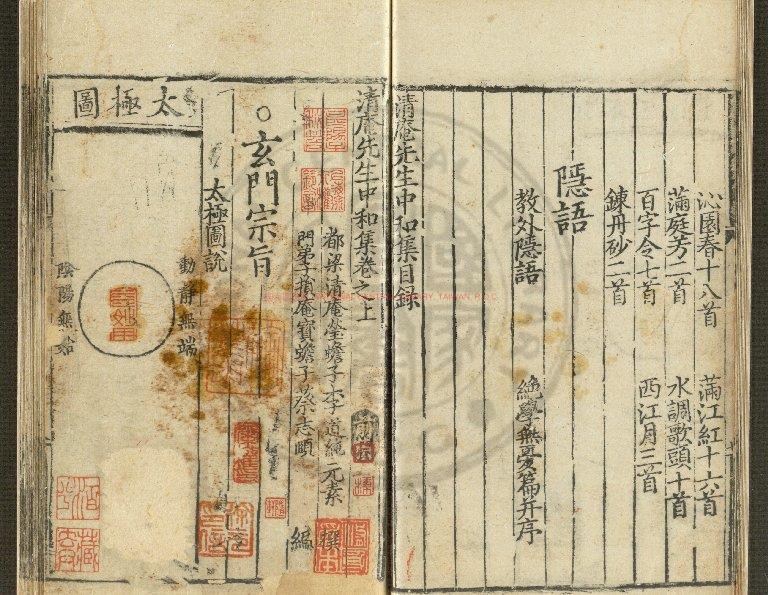 沁園春十八首　滿江紅十六首
滿庭芳二首　水調歌頭十首
百字令十首　西江月三首
鍊丹砂二首
隱語
教外隱語　絕學無憂篇并序
清庵先生中和集目録
清庵先生中和集卷之上
都梁清庵瑩蟾子李道純元素　撰
門弟子損庵寶蟾子蔡志頤　編
○玄門宗旨
太極圖說
太極圖
動靜無端
陰陽無始